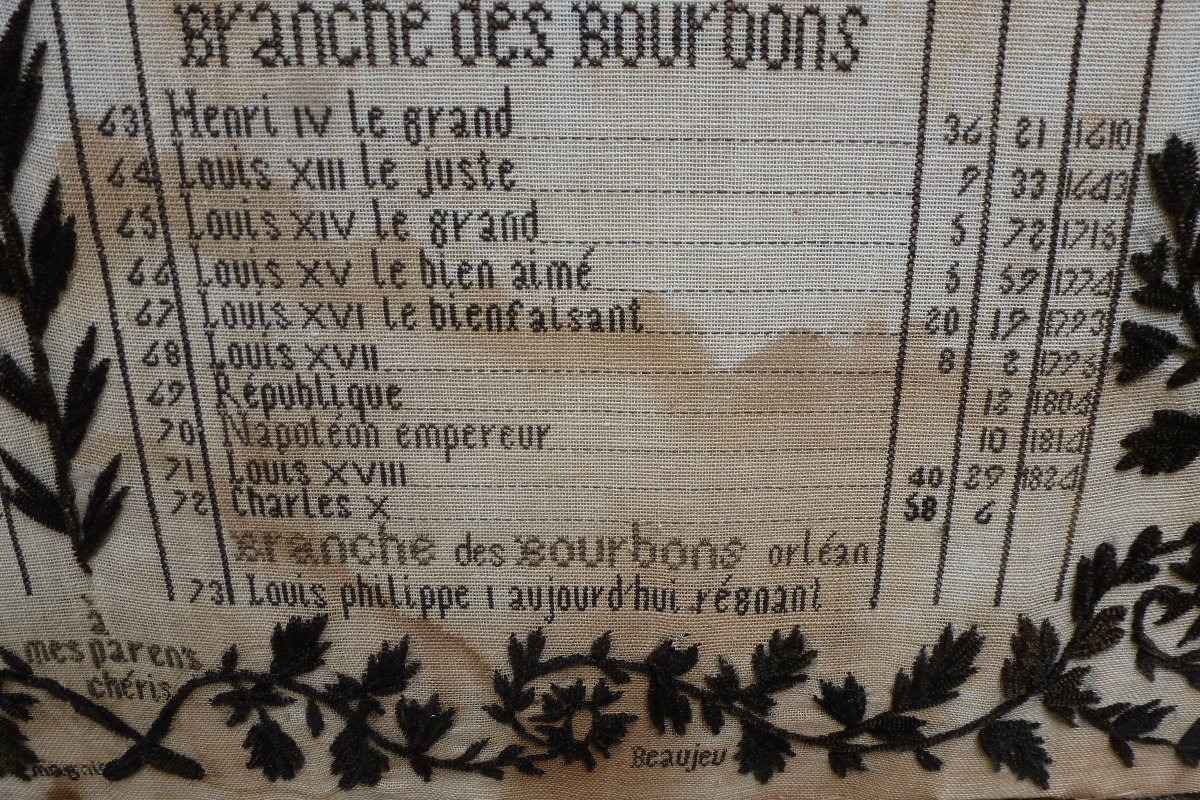 Branche des Bourbons
63 Henri IV le grand 36 21 1610
64 Louis XIII le juste 9 33 1643
65 Louis XIV le grand 5 72 1715
66 Louis XV le bien aimé 5 59 1774
67 Louis XVI le bienfaisant 20 19 1793
68 Louis XVII 8 2 1795
69 République 12 1804
70 Napoléon empereur 10 1814
71 Louis XVIII 40 29 1824
72 Charles X 58 6
Branche des Bourbons orléan
73 Louis philippe I aujourd'hui régnant
à
mes parens
chéris
Beaujeu